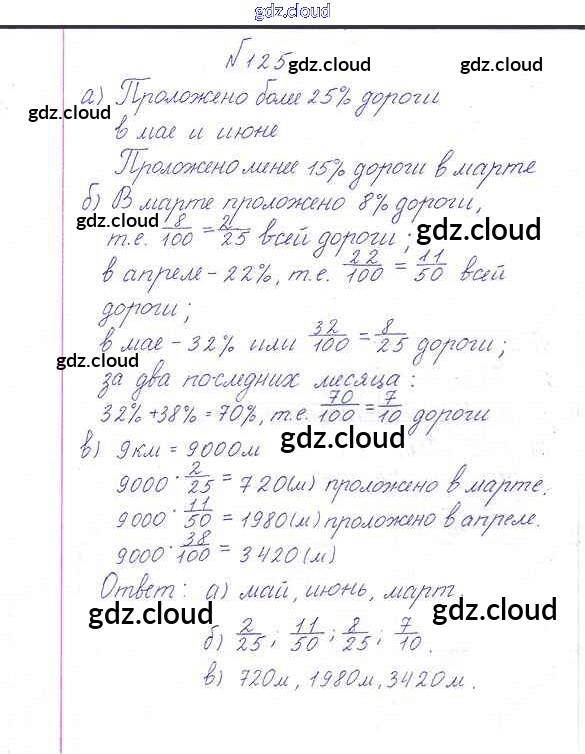 gdz.cloud
№125
а) Проложено более 25% дороги
в мае и июне
Проложено менее 15% дороги в марте
б) В марте проложено 8% дороги,
т.е. 8/100 = 2/25 всей дороги;
в апреле - 22%, т.е. 22/100 = 11/50 всей
дороги;
в мае - 32% или 32/100 = 8/25 дороги;
за два последних месяца:
32% + 38% = 70%, т.е. 70/100 = 7/10 дороги
в) 9км = 9000м
9000 · 2/25 = 720(м) проложено в марте.
9000 · 11/50 = 1980(м) проложено в апреле.
9000 · 38/100 = 3420(м)
Ответ: а) май, июнь, март.
б) 2/25; 11/50; 8/25; 7/10.
в) 720м, 1980м, 3420м.
gdz.cloud
gdz.cloud
gdz.cloud
gdz.cloud
gdz.cloud
gdz.cloud
gdz.cloud
gdz.cloud
gdz.cloud